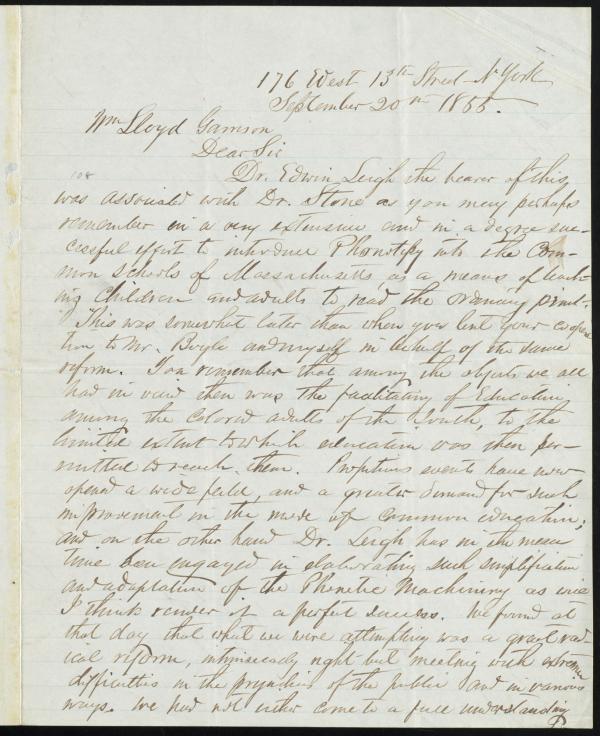 176 West 13th Street N. York
September 20th 1865.
Wm Lloyd Garrison
Dear Sir
108
Dr. Edwin Leigh the bearer of this,
was associated with Dr. Stone as you may perhaps
remember in a very extensive and in a degree suc-
cessful effort to introduce Phonotypy into the Com-
mon Schools of Massachusetts, as a means of teach-
ing Children and adults to read the ordinary print.
This was somewhat later than when you lent your coopera
tion to Mr. Boyle and myself in behalf of the same
reform. I can remember that among the objects we all
had in view then was the facilitating of Education
among the Colored adults of the South, to the
limited extent to which education was then per-
mitted to reach them. Propitious events have now
opened a wide field, and a greater demand for such
improvement in the mode of common education;
and on the other hand Dr. Leigh has in the mean
time been engaged in elaborating such simplification
and adaptation of the Phonetic Machinery as will
I think render it a perfect success. We found at
that day that what we were attempting was a great rad
ical reform, intrinsically right but meeting with extreme
difficulties in the prejudices of the public and in various
ways. We had not either come to a full understanding